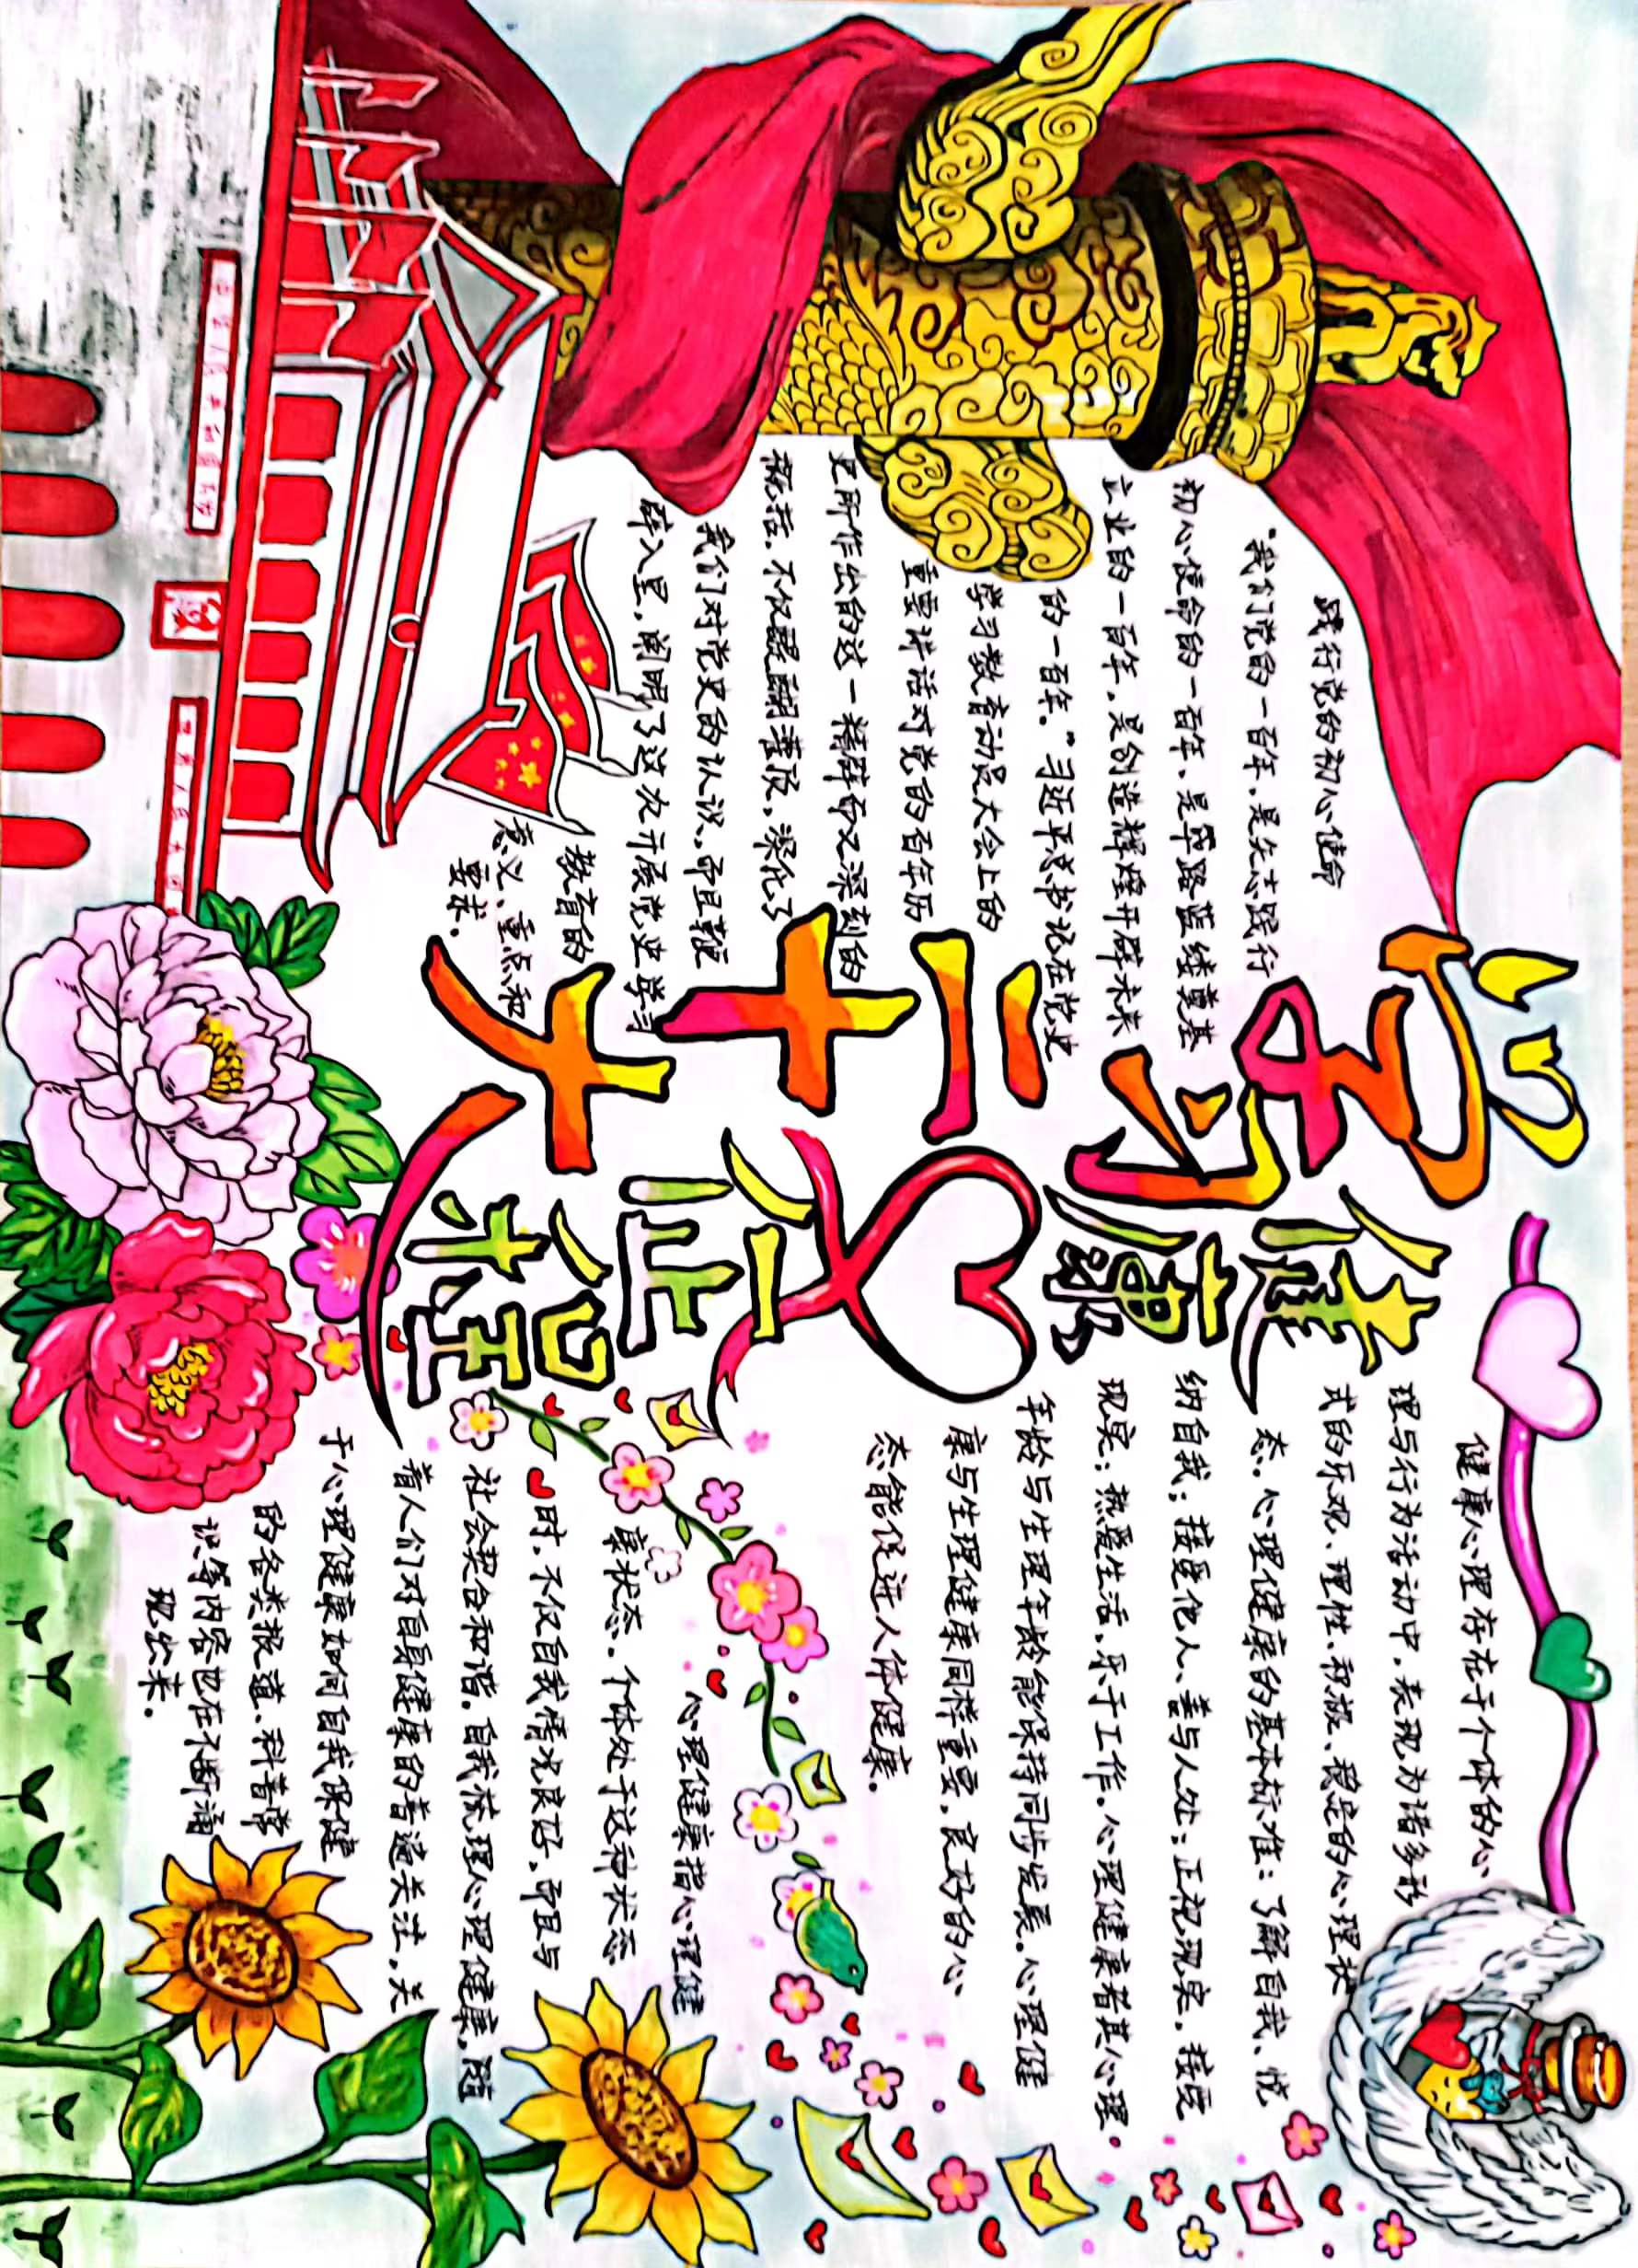 学习二十大
健康心征程
践行党的初心使命
"我们党的一百年，是矢志践行
初心使命的一百年，是筚路蓝缕奠基
立业的一百年，是创造辉煌开辟未来
的一百年。"习近平总书记在党史
学习教育动员大会上的
重要讲话对党的百年历
史所作出的这一精辟而又深刻的
概括，不仅醍醐灌顶，深化了
我们对党史的认识，而且鞭
辟入里，阐明了这次开展党史学习
教育的
意义、重点和
要求。
健康心理存在于个体的心
理与行为活动中，表现为诸多形
式的乐观、理性、积极、稳定的心理状
态。心理健康的基本标准：了解自我、悦
纳自我；接受他人、善与人处；正视现实，接受
现实；热爱生活，乐于工作。心理健康者其心理
年龄与生理年龄能保持同步发展。心理健
康与生理健康同样重要，良好的心
态能促进人体健康。
心理健康指心理健
康状态。个体处于这种状态
时，不仅自我情况良好，而且与
社会契合和谐。自我梳理心理健康，随
着人们对自身健康的普遍关注，关
于心理健康如何自我保健
的各类报道、科普常
识等内容也在不断涌
现出来。